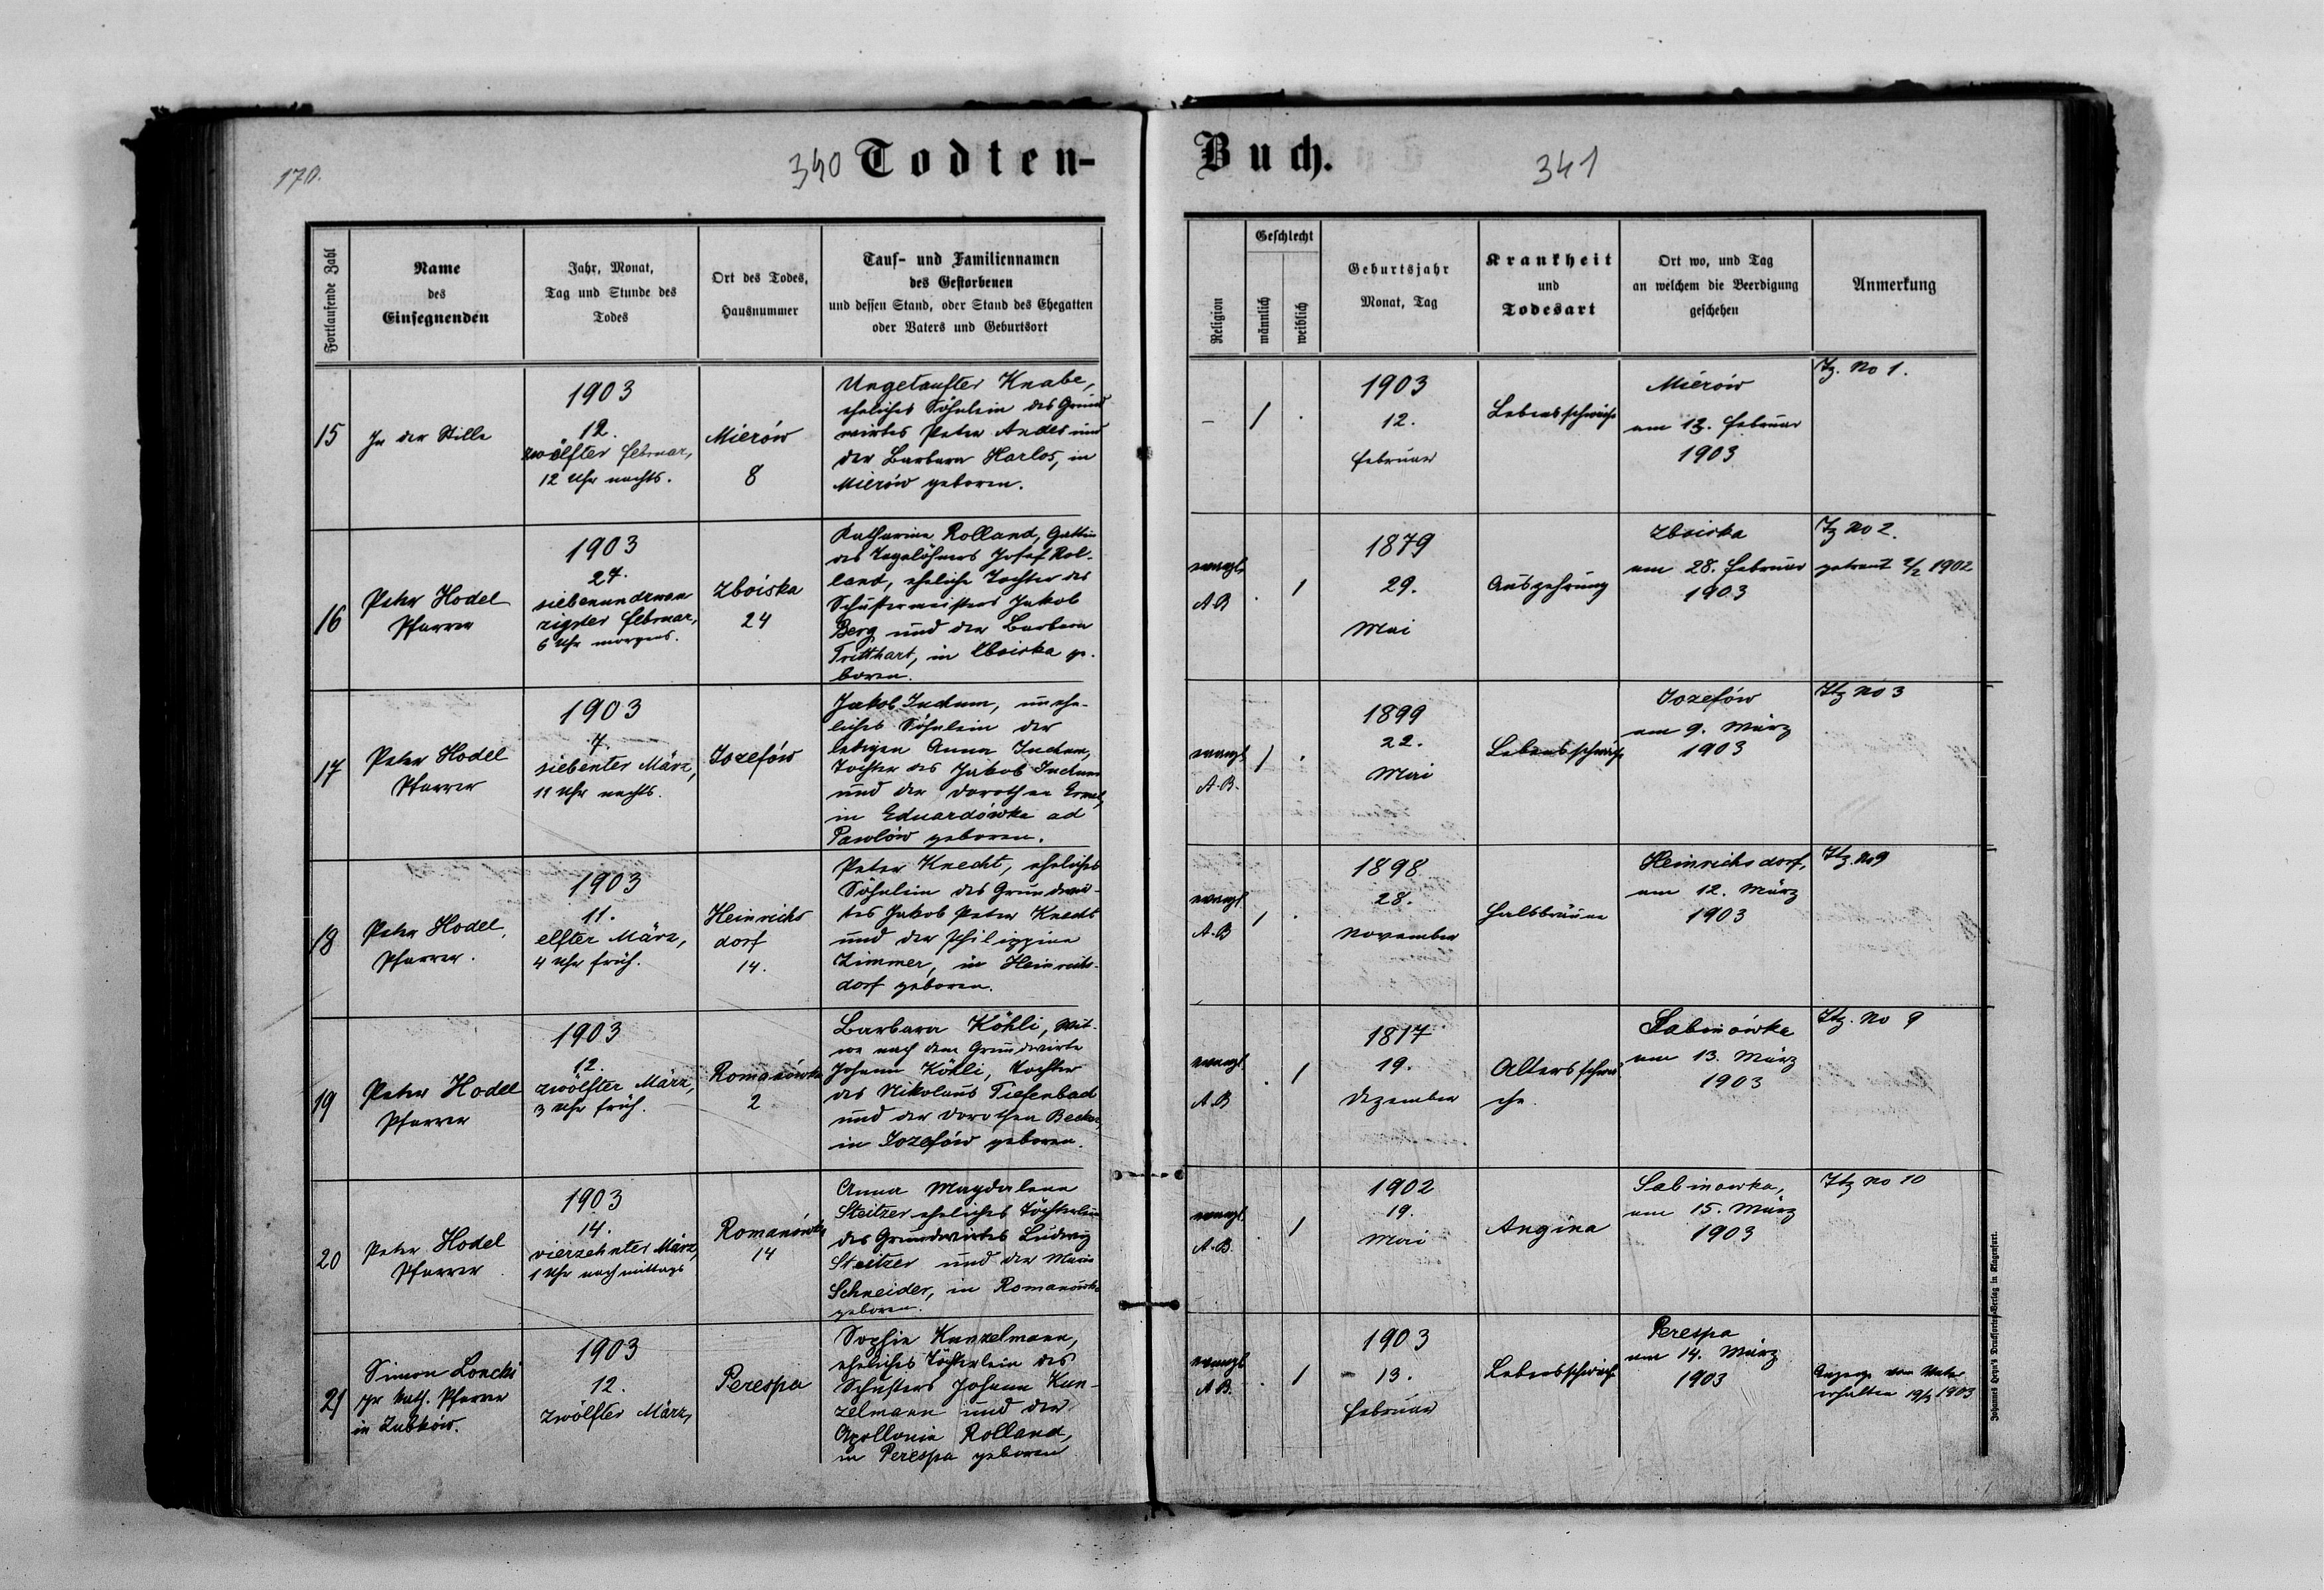 170.
340 Todten-
Buch. 341
Fortlaufende Zahl
Name
des
Einsegnenden
Jahr, Monat,
Tag und Stunde des
Todes
Ort des Todes,
Hausnummer
Tauf- und Familiennamen
des Gestorbenen
und dessen Stand, oder Stand des Ehegatten
oder Vaters und Geburtsort
Religion
Geschlecht
männlich
weiblich
Geburtsjahr
Monat, Tag
Krankheit
und
Todesart
Ort wo, und Tag
an welchem die Beerdigung
geschehen
Anmerkung
15
In der Stille
1903
12.
zwölfter Februar,
12 Uhr nachts.
Mierów
8
Ungetaufter Knabe,
eheliches Söhnlein des Grund
wirtes Peter Andes und
der Barbara Harlos, in
Mierów geboren.
-
/ .
1903
12.
Februar
Lebensschwäche
Mierów
am 13. Februar
1903
No 1.
16
Peter Hodel
Pfarrer
1903
27.
siebenundzwan
zigster Februar,
6 Uhr morgens.
Zboiska
24
Katharina Rolland, Gattin
des Tagelöhners Josef Rol-
land, eheliche Tochter des
Schustermeisters Jakob
Berg und der Barbara
Tritthart, in Zboiska ge-
boren.
evangl.
A.B
. /
1879
29.
Mai
Auszehrung
Zboiska
am 28. Februar
1903
No 2.
getraut 2/2 1902
17
Peter Hodel
Pfarrer
1903
7.
siebenter März,
11 Uhr nachts.
Jozefów
Jakob Indum, unehe-
liches Söhnlein der
ledigen Anna Indum,
Tochter des Jakob Indum
und der Dorothea
in Eduardówka ad
Pawlów geboren.
evangl.
A.B.
/ .
1899
22.
Mai
Lebensschwäche
Jozefów
am 9. März
1903
No 3
18
Peter Hodel,
Pfarrer.
1903
11.
elfter März,
4 Uhr früh.
Heinrichs
dorf
14.
Peter Knecht, eheliches
Söhnlein des Grundwir-
tes Jakob Peter Knecht
und der Philippine
Zimmer, in Heinrichs-
dorf geboren.
evangl.
A.B
/ .
1898
28.
November
Halsbräune
Heinrichsdorf,
am 12. März
1903
No 9
19
Peter Hodel
Pfarrer
1903
12.
zwölfter März,
3 Uhr früh.
Romanówka
2
Barbara Köhli, Wit-
we nach dem Grundwirte
Johann Köhli, Tochter
des Nikolaus Tiefenbach
und der Dorothea Becker,
in Jozefów geboren.
evangl.
A.B
. /
1817
19.
Dezember
Altersschwä-
che.
Sabinówka
am 13. März
1903
No 9
20
Peter Hodel
Pfarrer
1903
14.
vierzehnter März,
1 Uhr nachmittags
Romanówka
14
Anna Magdalena
Steitzer eheliches Töchterlein
des Grundwirtes Ludwig
Steitzer und der Maria
Schneider, in Romanówka
geboren.
evangl.
A.B.
. /
1902
19.
Mai
Angina
Sabinowka,
am 15. März
1903
No 10
21
Simon
Kath. Pfarrer
in Zubków.
1903
12.
zwölfter März,
Perespa
Sophie Kunzelmann,
eheliches Töchterlein des
Schusters Johann Kun-
zelmann und der
Apollonia Rolland,
in Perespa geboren
evangl.
A.B.
. /
1903
13.
Februar
Lebensschwäche
Perespa
am 14. März
1903
Anzeige vom Vater
erhalten 19/3 1903
Johannes Heyn's Druckforten-Verlag in Klagenfurt.